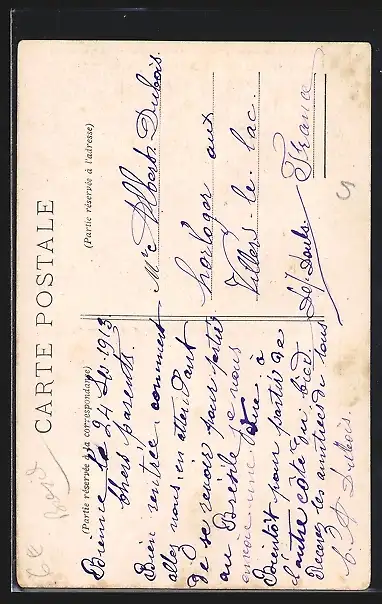 CARTE POSTALE
(Partie réservée à la correspondance)
(Partie réservée à l'adresse)
Bienne le 24 1913
Chers parents.
Bien rentrée comment
allez vous, en attendant
de se revoir pour partir
au je vous
envoie une vue à
Bientôt pour partir de
l'autre côté du
Recevez les amitiés de tous
Dubois.
Mr Albert Dubois.
horloger aux
Villers-le-lac.
Dep. Doubs.
France